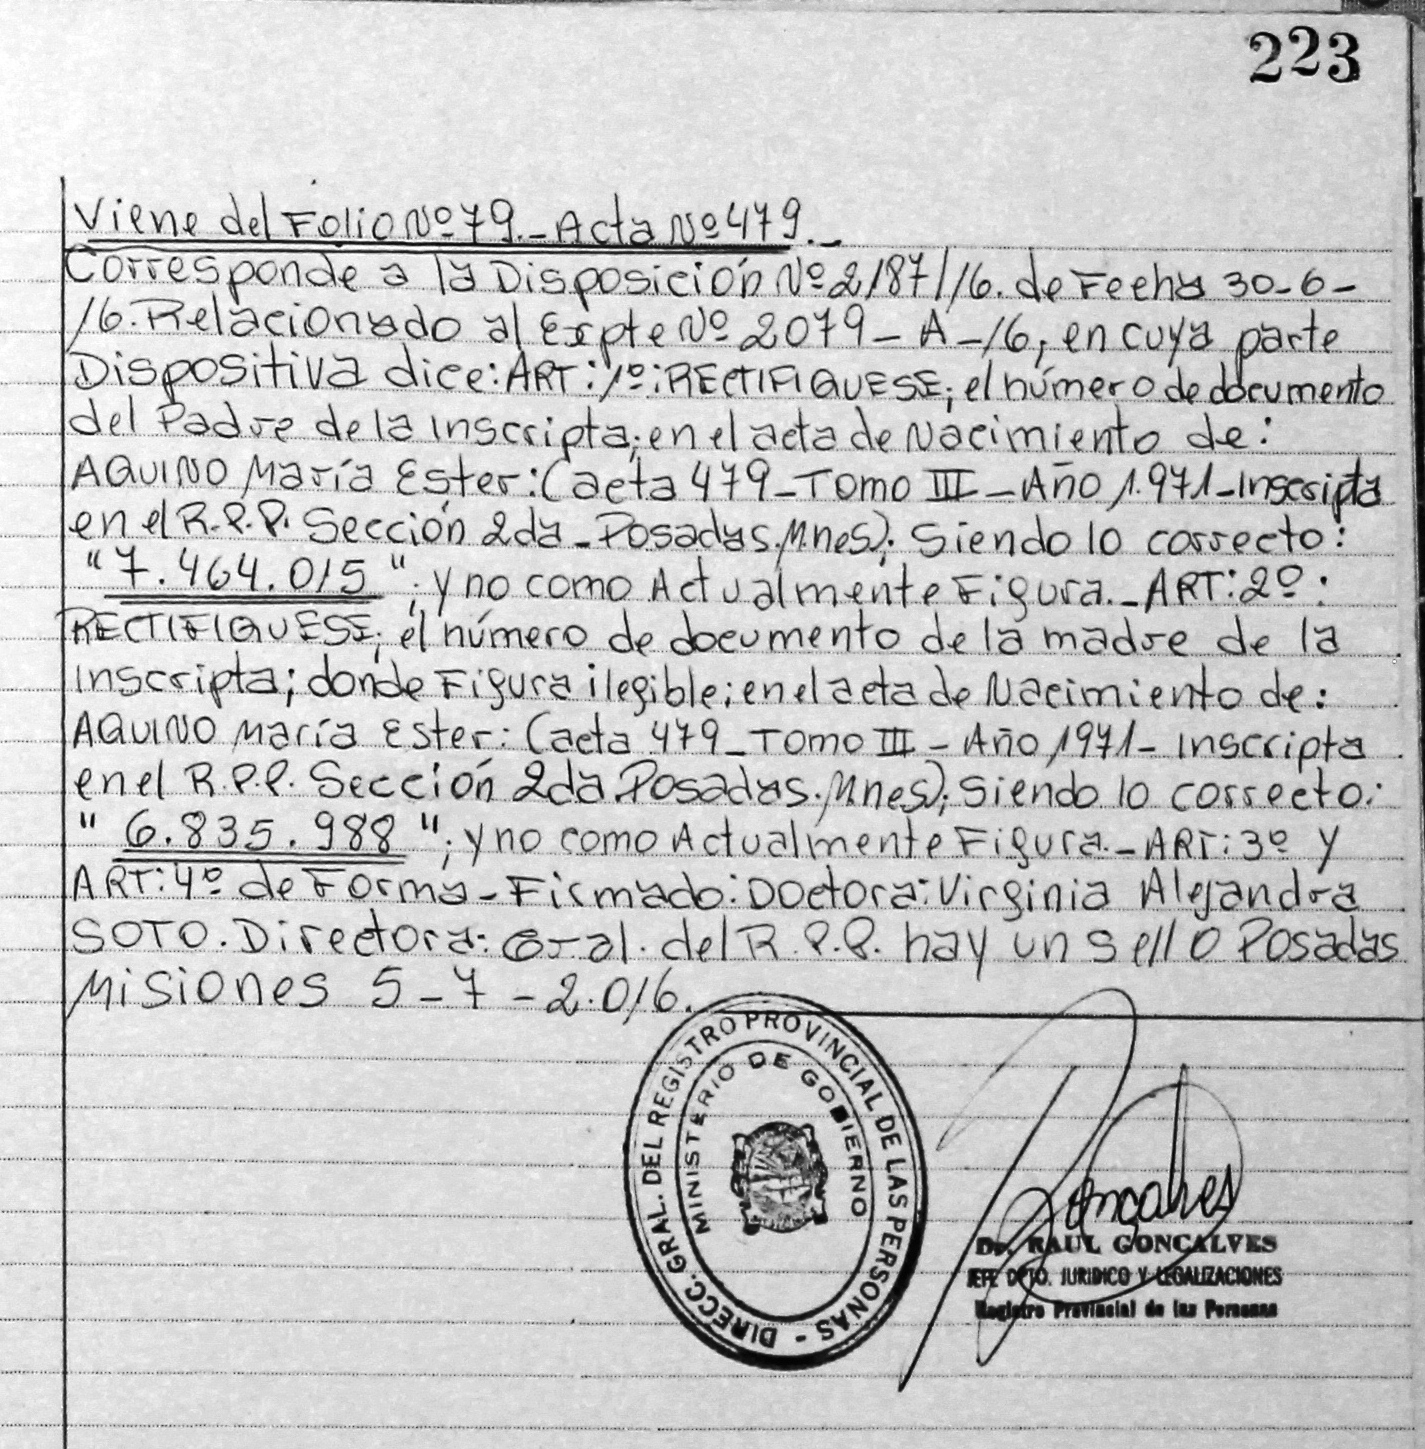 223
Viene del Folio Nº 79.- Acta Nº 479.-
Corresponde a la Disposición Nº 2187/16. de Fecha 30-6-
16. Relacionado al Expte Nº 2079-A-16, en cuya parte
Dispositiva dice: ART: 1º: RECTIFIQUESE; el número de documento
del Padre de la inscripta; en el acta de Nacimiento de:
AQUINO María Ester: (acta 479-Tomo III-Año 1.971-Inscripta
en el R.P.P. Sección 2da-Posadas.Mnes); Siendo lo correcto:
"7.464.015"; y no como Actualmente Figura.-ART: 2º:
RECTIFIQUESE; el número de documento de la madre de la
inscripta; donde Figura ilegible; en el acta de Nacimiento de:
AQUINO María Ester: (acta 479-Tomo III-Año 1971-Inscripta
en el R.P.P. Sección 2da.Posadas.Mnes); Siendo lo correcto:
"6.835.988"; y no como Actualmente Figura.-ART: 3º y
ART: 4º de Forma-Firmado: Doctora: Virginia Alejandra
SOTO. Directora: Gral. del R.P.P. hay un sello Posadas
Misiones 5-7-2.016.
DIRECC. GRAL. DEL REGISTRO PROVINCIAL DE LAS PERSONAS -
MINISTERIO DE GOBIERNO
Gonçalves
Dr. RAUL GONCALVES
JEFE DPTO. JURIDICO Y LEGALIZACIONES
Registro Provincial de las Personas